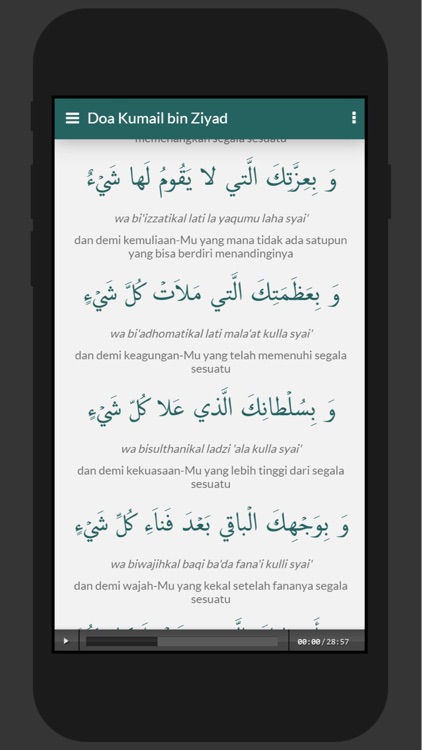 Doa Kumail bin Ziyad
memenangkan segala sesuatu
وَ بِعِزَّتِكَ الَّتي لا يَقُومُ لَها شَيْءٌ
wa bi'izzatikal lati la yaqumu laha syai'
dan demi kemuliaan-Mu yang mana tidak ada satupun
yang bisa berdiri menandinginya
وَ بِعَظَمَتِكَ الَّتي مَلَاَتْ كُلَّ شَيْءٍ
wa bi'adhomatikal lati mala'at kulla syai'
dan demi keagungan-Mu yang telah memenuhi segala
sesuatu
وَ بِسُلْطانِكَ الَّذي عَلا كُلّ شَيْءٍ
wa bisulthanikal ladzi 'ala kulla syai'
dan demi kekuasaan-Mu yang lebih tinggi dari segala
sesuatu
وَ بِوَجْهِكَ الْباقي بَعْدَ فَناَءِ كُلِّ شَيْءٍ
wa biwajhikal baqi ba'da fana'i kulli syai'
dan demi wajah-Mu yang kekal setelah fananya segala
sesuatu
00:00/28:57